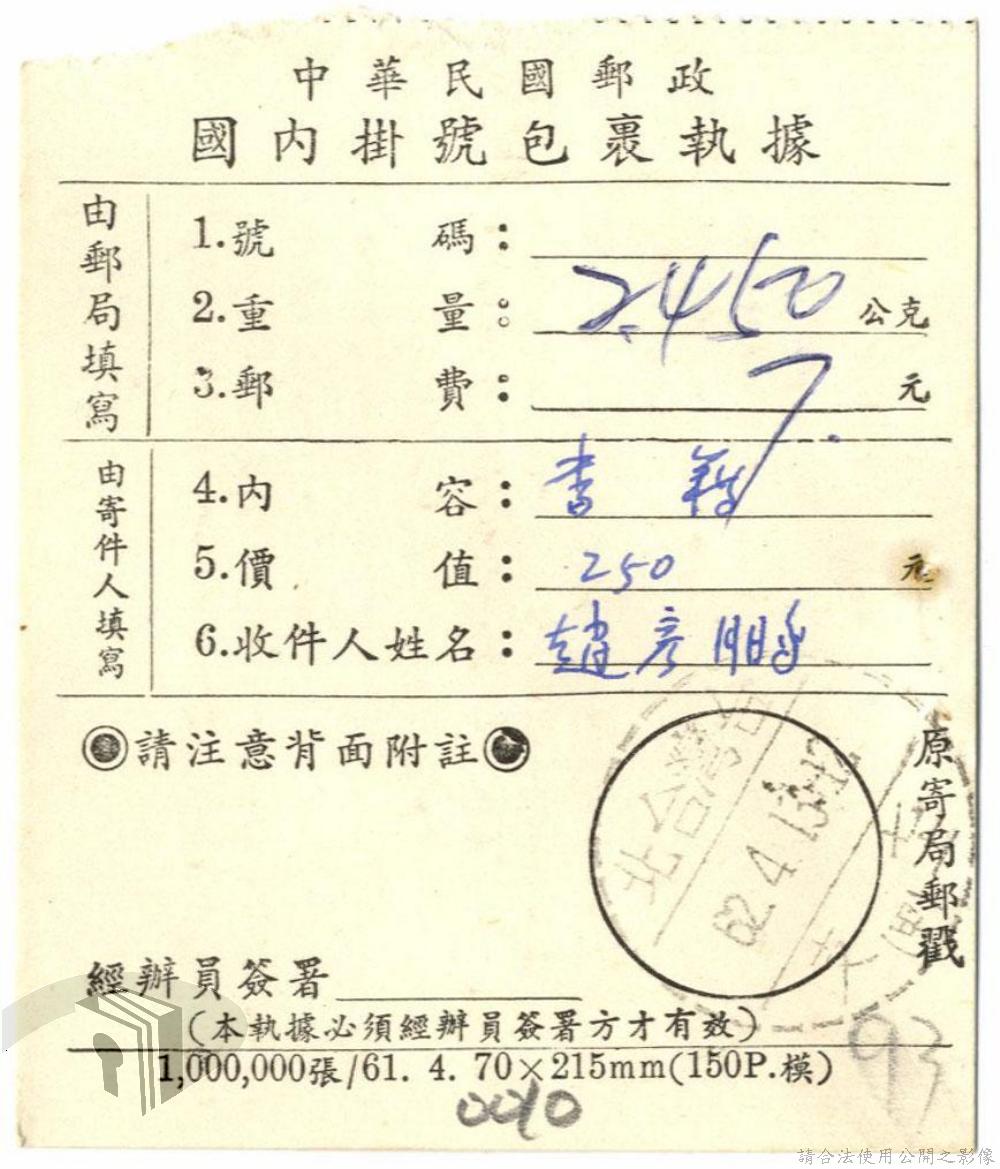 中華民國郵政
國內掛號包裹執據
由郵局填寫
1.號碼：
2.重量：2.450公克
3.郵費：7.元
由寄件人填寫
4.內容：書籍
5.價值：250元
6.收件人姓名：趙彥鵬
◉請注意背面附註◉
原寄局郵戳
台灣
北
62.4.13.12
經辦員簽署
(本執據必須經辦員簽署方才有效)
1,000,000張/61. 4. 70×215mm(150P.模)
0010
93
請合法使用公開之影像